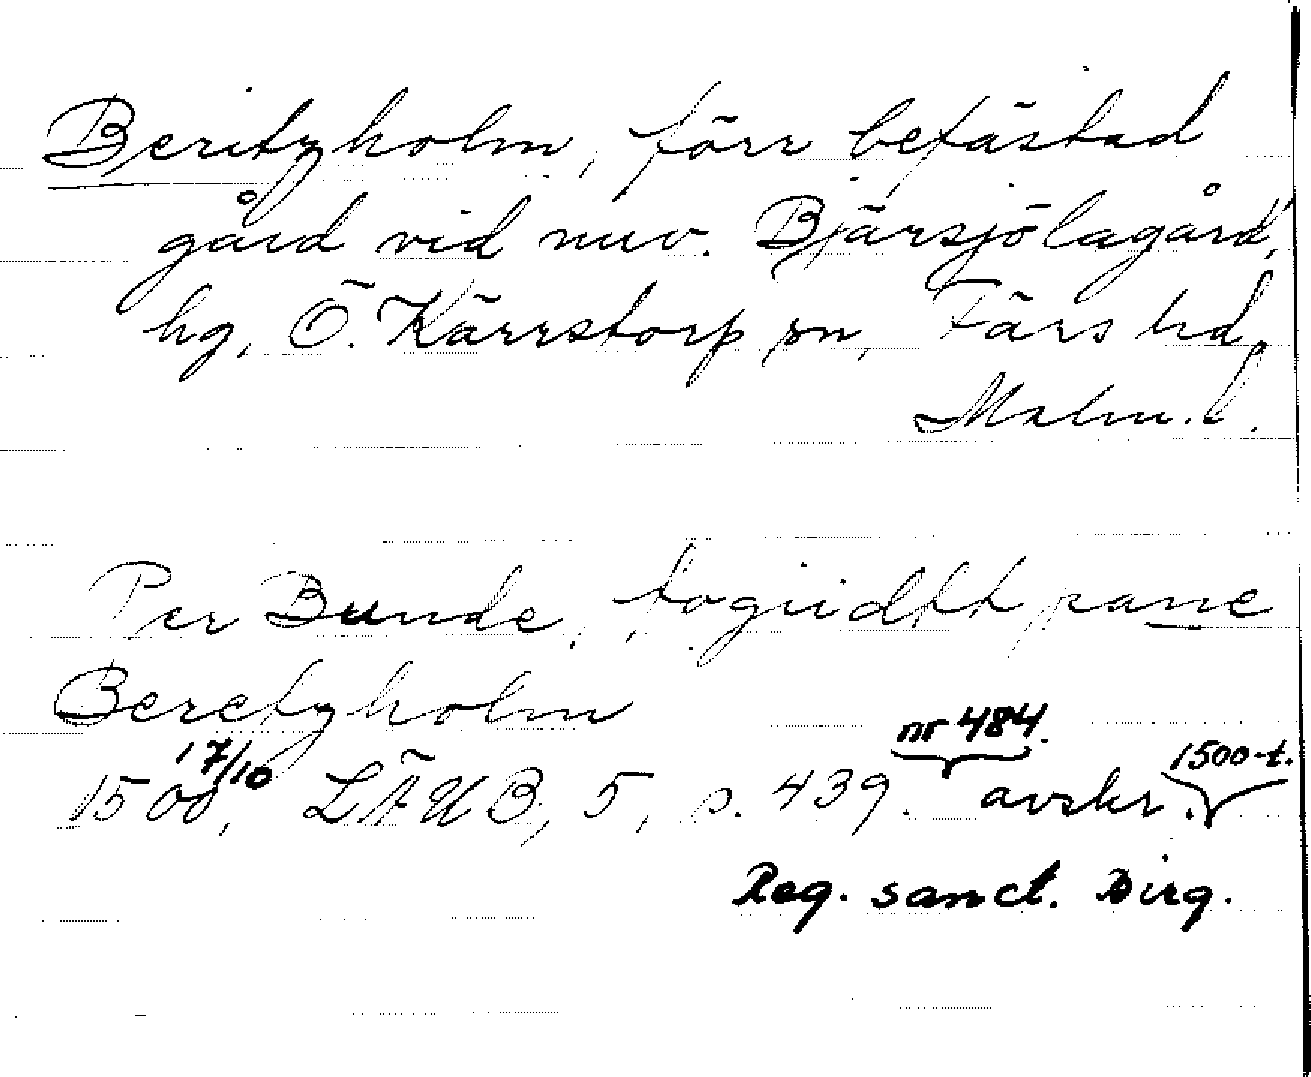 Beritzholm, förr befästad
gård vid nuv. Bjärsjölagård,
hg, Ö. Kärrstorp sn, Färs hd,
Malm. l.
Per Bunde, pane
Beretzholm
17/10 nr 484. 1500-t.
1500, LÄUB, 5, s. 439. avskr.
Reg. sanct. Birg.